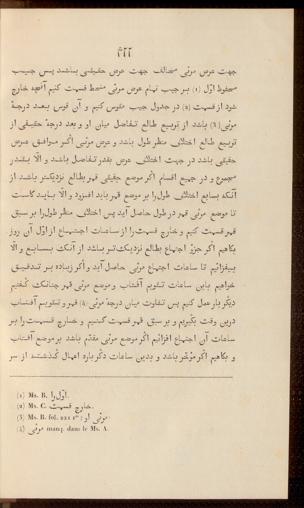 ٢٢٢
جهت عرض مرئی مخالف جهت عرض حقیقی باشد پس جیب
محفوظ اوّل (1) بر جیب تمام عرض مرئی منحط قسمت کنیم آنچه خارج
شود از قسمت (2) در جدول جیب مقوس کنیم و آن قوس بعد درجهٔ
مرئی (3) باشد از تربیع طالع تفاضل میان او و بعد درجهٔ حقیقی از
تربیع طالع اختلاف منظر طول باشد و عرض مرئی اگر موافق عرض
حقیقی باشد در جهت اختلاف عرض بقدر تفاضل باشد و الّا بقدر
مجموع و در جمیع اقسام اگر موضع حقیقی قمر بطالع نزدیکتر باشد از
آنکه بسابع اختلاف طول را بر موضع قمر باید افزود و الّا بباید کاست
تا موضع مرئی قمر در طول حاصل آید پس اختلاف منظر طول را بر سبق
قمر قسمت کنیم و خارج قسمت را از ساعات اجتماع از اوّل آن روز
بکاهیم اگر جزؤ اجتماع بطالع نزدیکتر باشد از آنک بسابع و الّا
بیفزائیم تا ساعات اجتماع مرئی حاصل آید و اگر زیاده بر تدقیق
خواهیم باین ساعات تقویم آفتاب و موضع مرئی قمر چنانک گفتیم
دیگر بار عمل کنیم پس تفاوت میان درجهٔ مرئی (4) قمر و تقویم آفتاب
درین وقت بگیریم و بر سبق قمر قسمت کنیم و خارج قسمت را بر
ساعات آن اجتماع افزائیم اگر موضع مرئی مقدّم باشد بر موضع آفتاب
و بکاهیم اگر مؤخّر باشد و بدین ساعات دگرباره اعمال گذشته از سر
(1) Ms. B. اوّل را.
(2) Ms. C. خارج قسمت.
(3) Ms. B. fol. 221 rº: مرئی او.
(4) مرئی manq. dans le Ms. A.